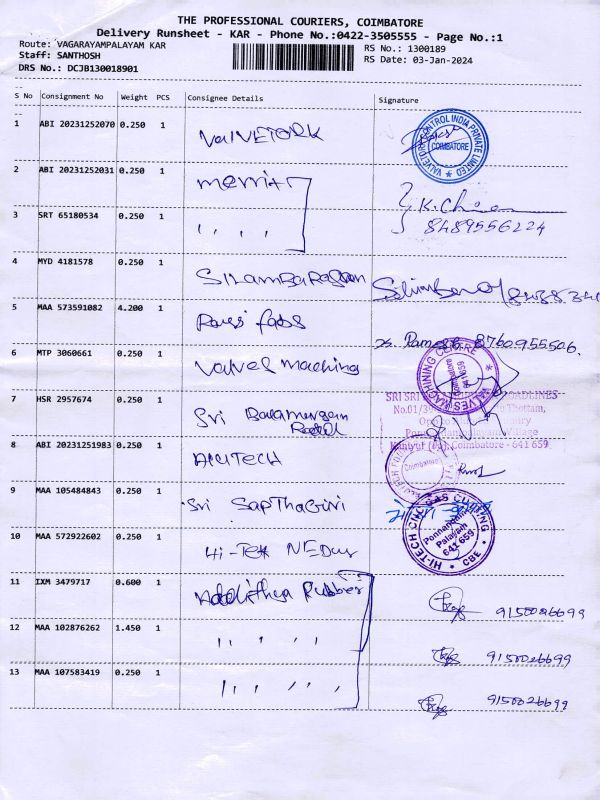 THE PROFESSIONAL COURIERS, COIMBATORE
Delivery Runsheet - KAR - Phone No.:0422-3505555 - Page No.:1
Route: VAGARAYAMPALAYAM KAR
RS No.: 1300189
Staff: SANTHOSH
RS Date: 03-Jan-2024
DRS No.: DCJB130018901
S No Consignment No Weight PCS Consignee Details Signature
1 ABI 20231252070 0.250 1 VALVETORK
VALVETORK CONTROL INDIA PRIVATE LIMITED
COIMBATORE
2 ABI 20231252031 0.250 1 merrit
K.
8489556224
3 SRT 65180534 0.250 1 " "
4 MYD 4181578 0.250 1
5 MAA 573591082 4.200 1 fabs
Ramesh 8760955506.
6 MTP 3060661 0.250 1 Valves maching
VALVES MACHINING CENTRE
7 HSR 2957674 0.250 1 Sri Balamurgan
SRI SRI
No.01/
Coimbatore - 641 659
8 ABI 20231251983 0.250 1
Coimbatore
9 MAA 105484843 0.250 1 Sri SapThaGiri
10 MAA 572922602 0.250 1 Hi-Tek
HI-TECH CNC GAS CUTTING
Palayam
641 659
CBE
11 IXM 3479717 0.600 1 Addithya Rubber
9150026699
12 MAA 102876262 1.450 1 " " " "
9150026699
13 MAA 107583419 0.250 1 " " " "
9150026699